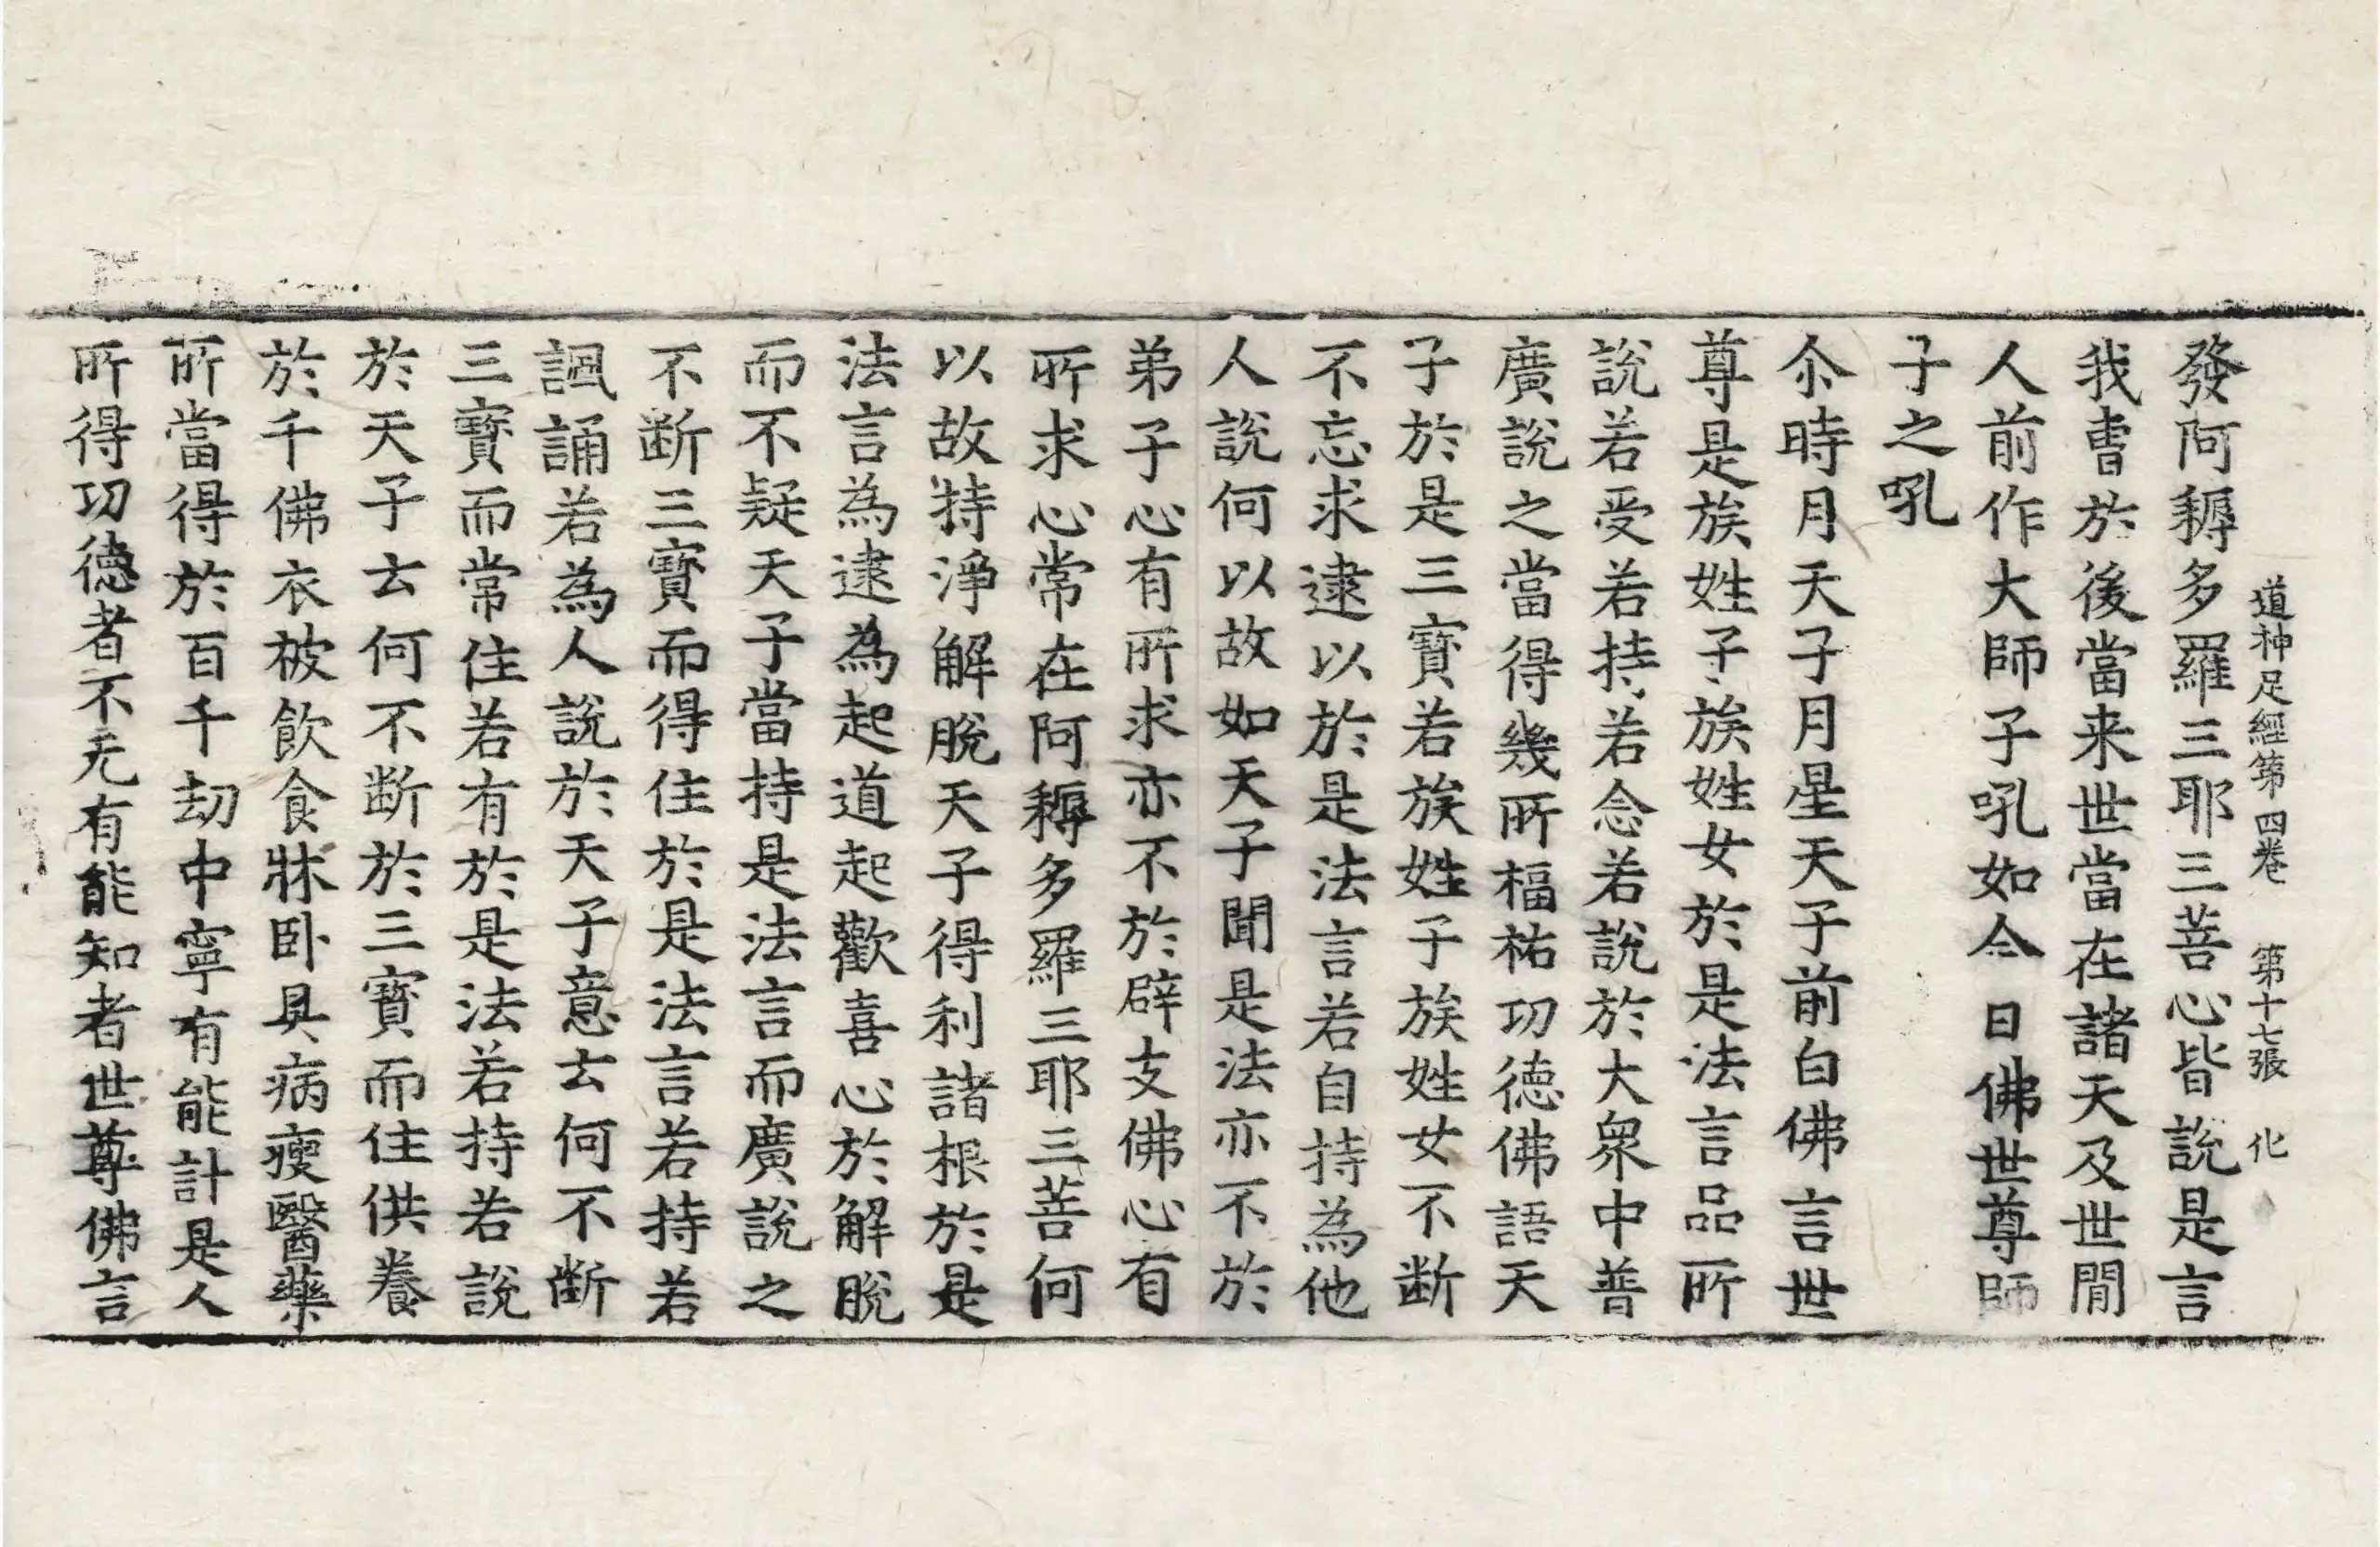 道神足經第四卷　第十七張　化
發阿耨多羅三耶三菩心皆說是言
我曹於後當来世當在諸天及世間
人前作大師子吼如今日佛世尊師
子之吼
尒時月天子月星天子前白佛言世
尊是族姓子族姓女於是法言品所
說若受若持若念若說於大衆中普
廣說之當得幾所福祐功德佛語天
子於是三寶若族姓子族姓女不断
不忘求逮以於是法言若自持為他
人說何以故如天子聞是法亦不於
弟子心有所求亦不於辟支佛心有
所求心常在阿耨多羅三耶三菩何
以故持淨解脫天子得利諸根於是
法言為逮為起道起歡喜心於解脫
而不疑天子當持是法言而廣說之
不断三寶而得住於是法言若持若
諷誦若為人說於天子意云何不断
三寶而常住若有於是法若持若說
於天子云何不断於三寶而住供養
於千佛衣被飲食牀卧具病瘦醫藥
所當得於百千劫中寧有能計是人
所得功德者不无有能知者世尊佛言